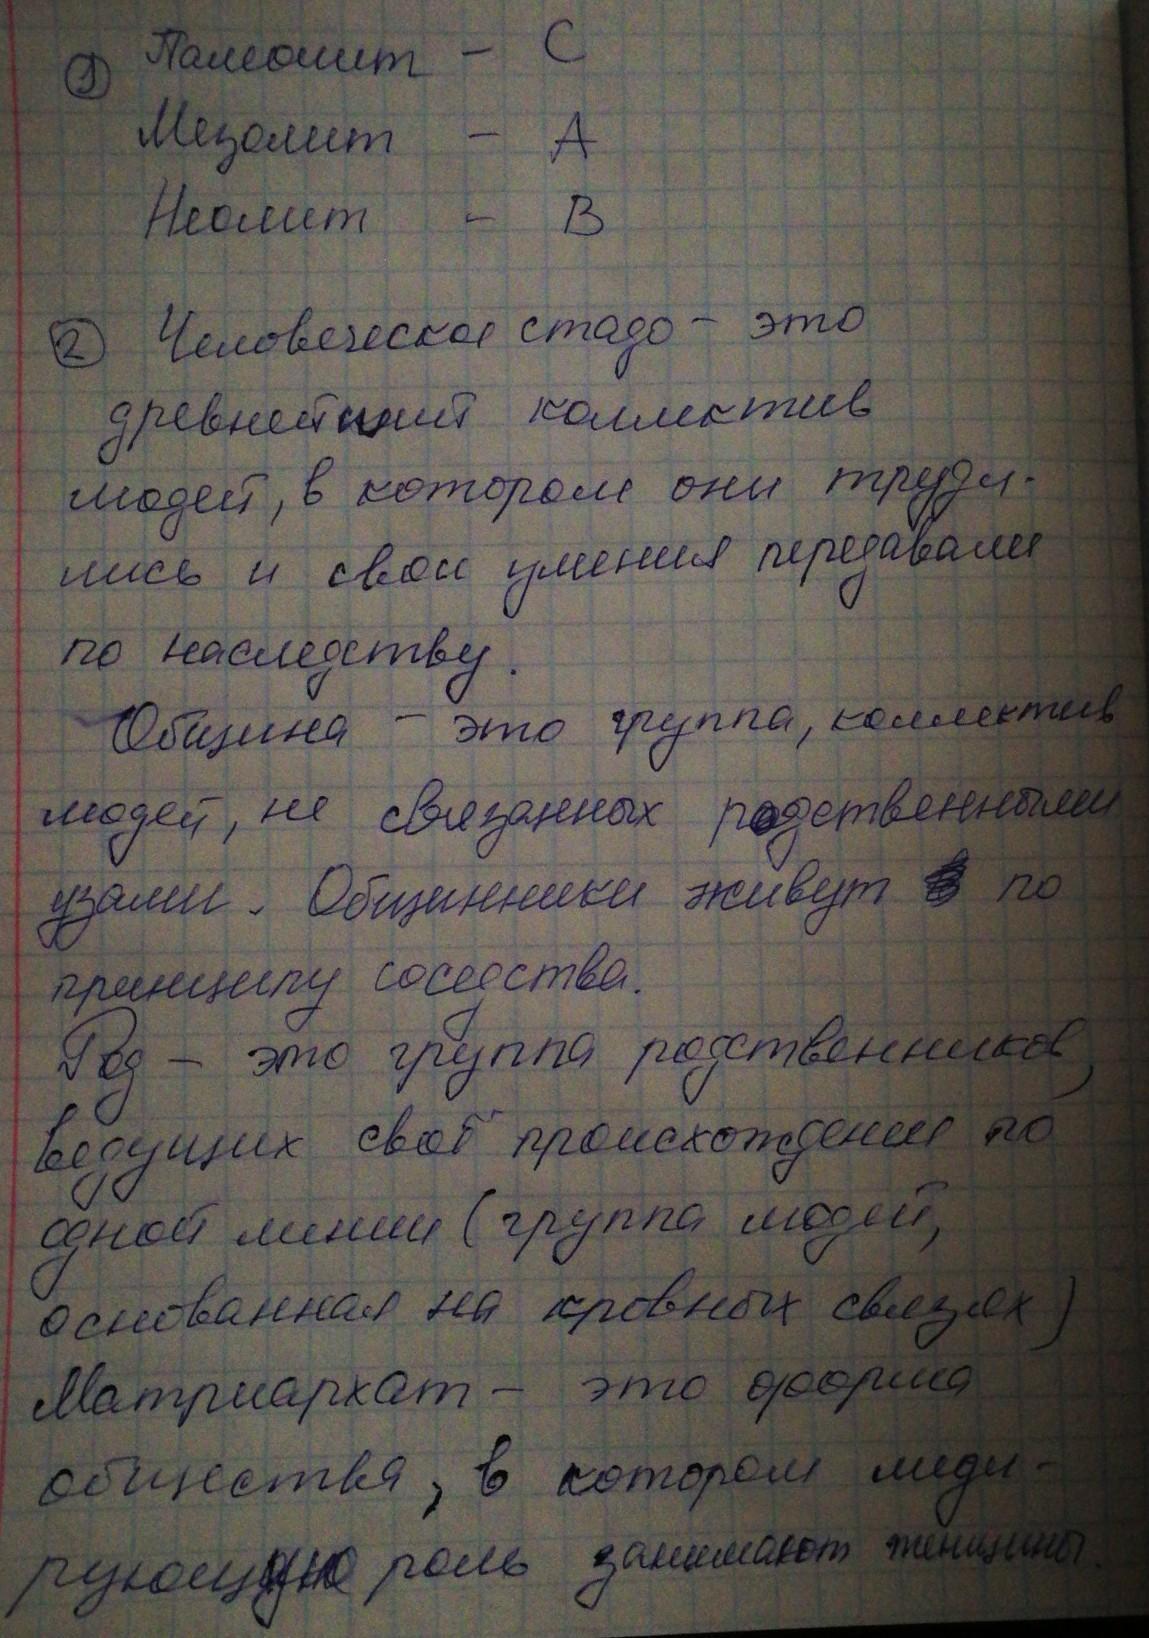 ① Палеолит - С
Мезолит - А
Неолит - В
② Человеческое стадо - это
древнейший коллектив
людей, в котором они труди-
лись и свои умения передавали
по наследству.
Община - это группа, коллектив
людей, не связанных родственными
узами. Общинники живут по
принципу соседства.
Род - это группа родственников,
ведущих своё происхождение по
одной линии (группа людей,
основанная на кровных связях)
Матриархат - это форма
общества, в котором лиди-
рующую роль занимают женщины.